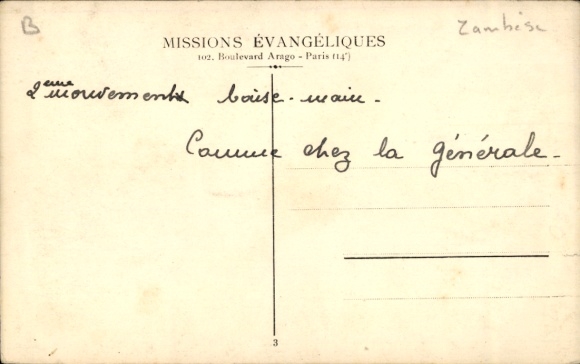 B
Zambèse
MISSIONS ÉVANGÉLIQUES
102, Boulevard Arago - Paris (14e)
2eme mouvement baise-main -
Comme chez la générale -
3